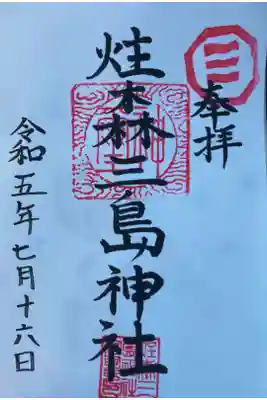 奉拝
炷森三島神社
令和五年七月十六日